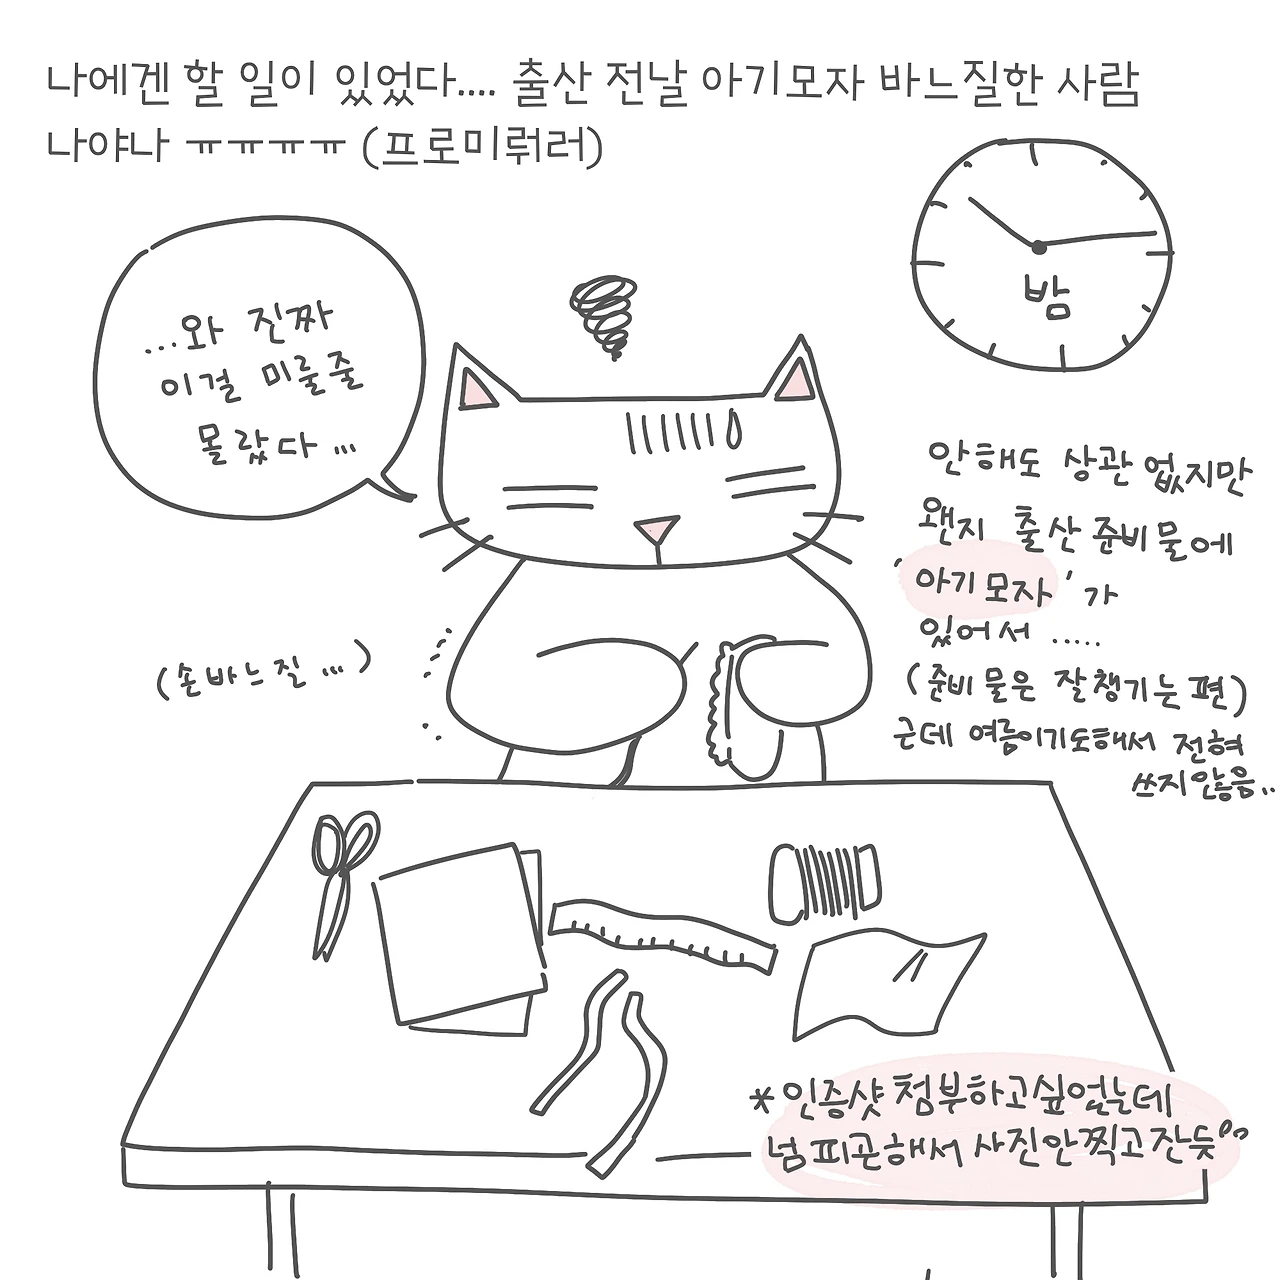 나에겐 할 일이 있었다.... 출산 전날 아기모자 바느질한 사람
나야나 ㅠㅠㅠㅠ (프로미뤄러)
밤
...와 진짜
이걸 미룰줄
몰랐다...
안해도 상관 없지만
왠지 출산 준비물에
'아기모자'가
있어서 .....
(준비물은 잘챙기는 편)
근데 여름이기도해서 전혀
쓰지않음..
(손바느질...)
*인증샷 첨부하고싶었는데
넘 피곤해서 사진안찍고잔듯..